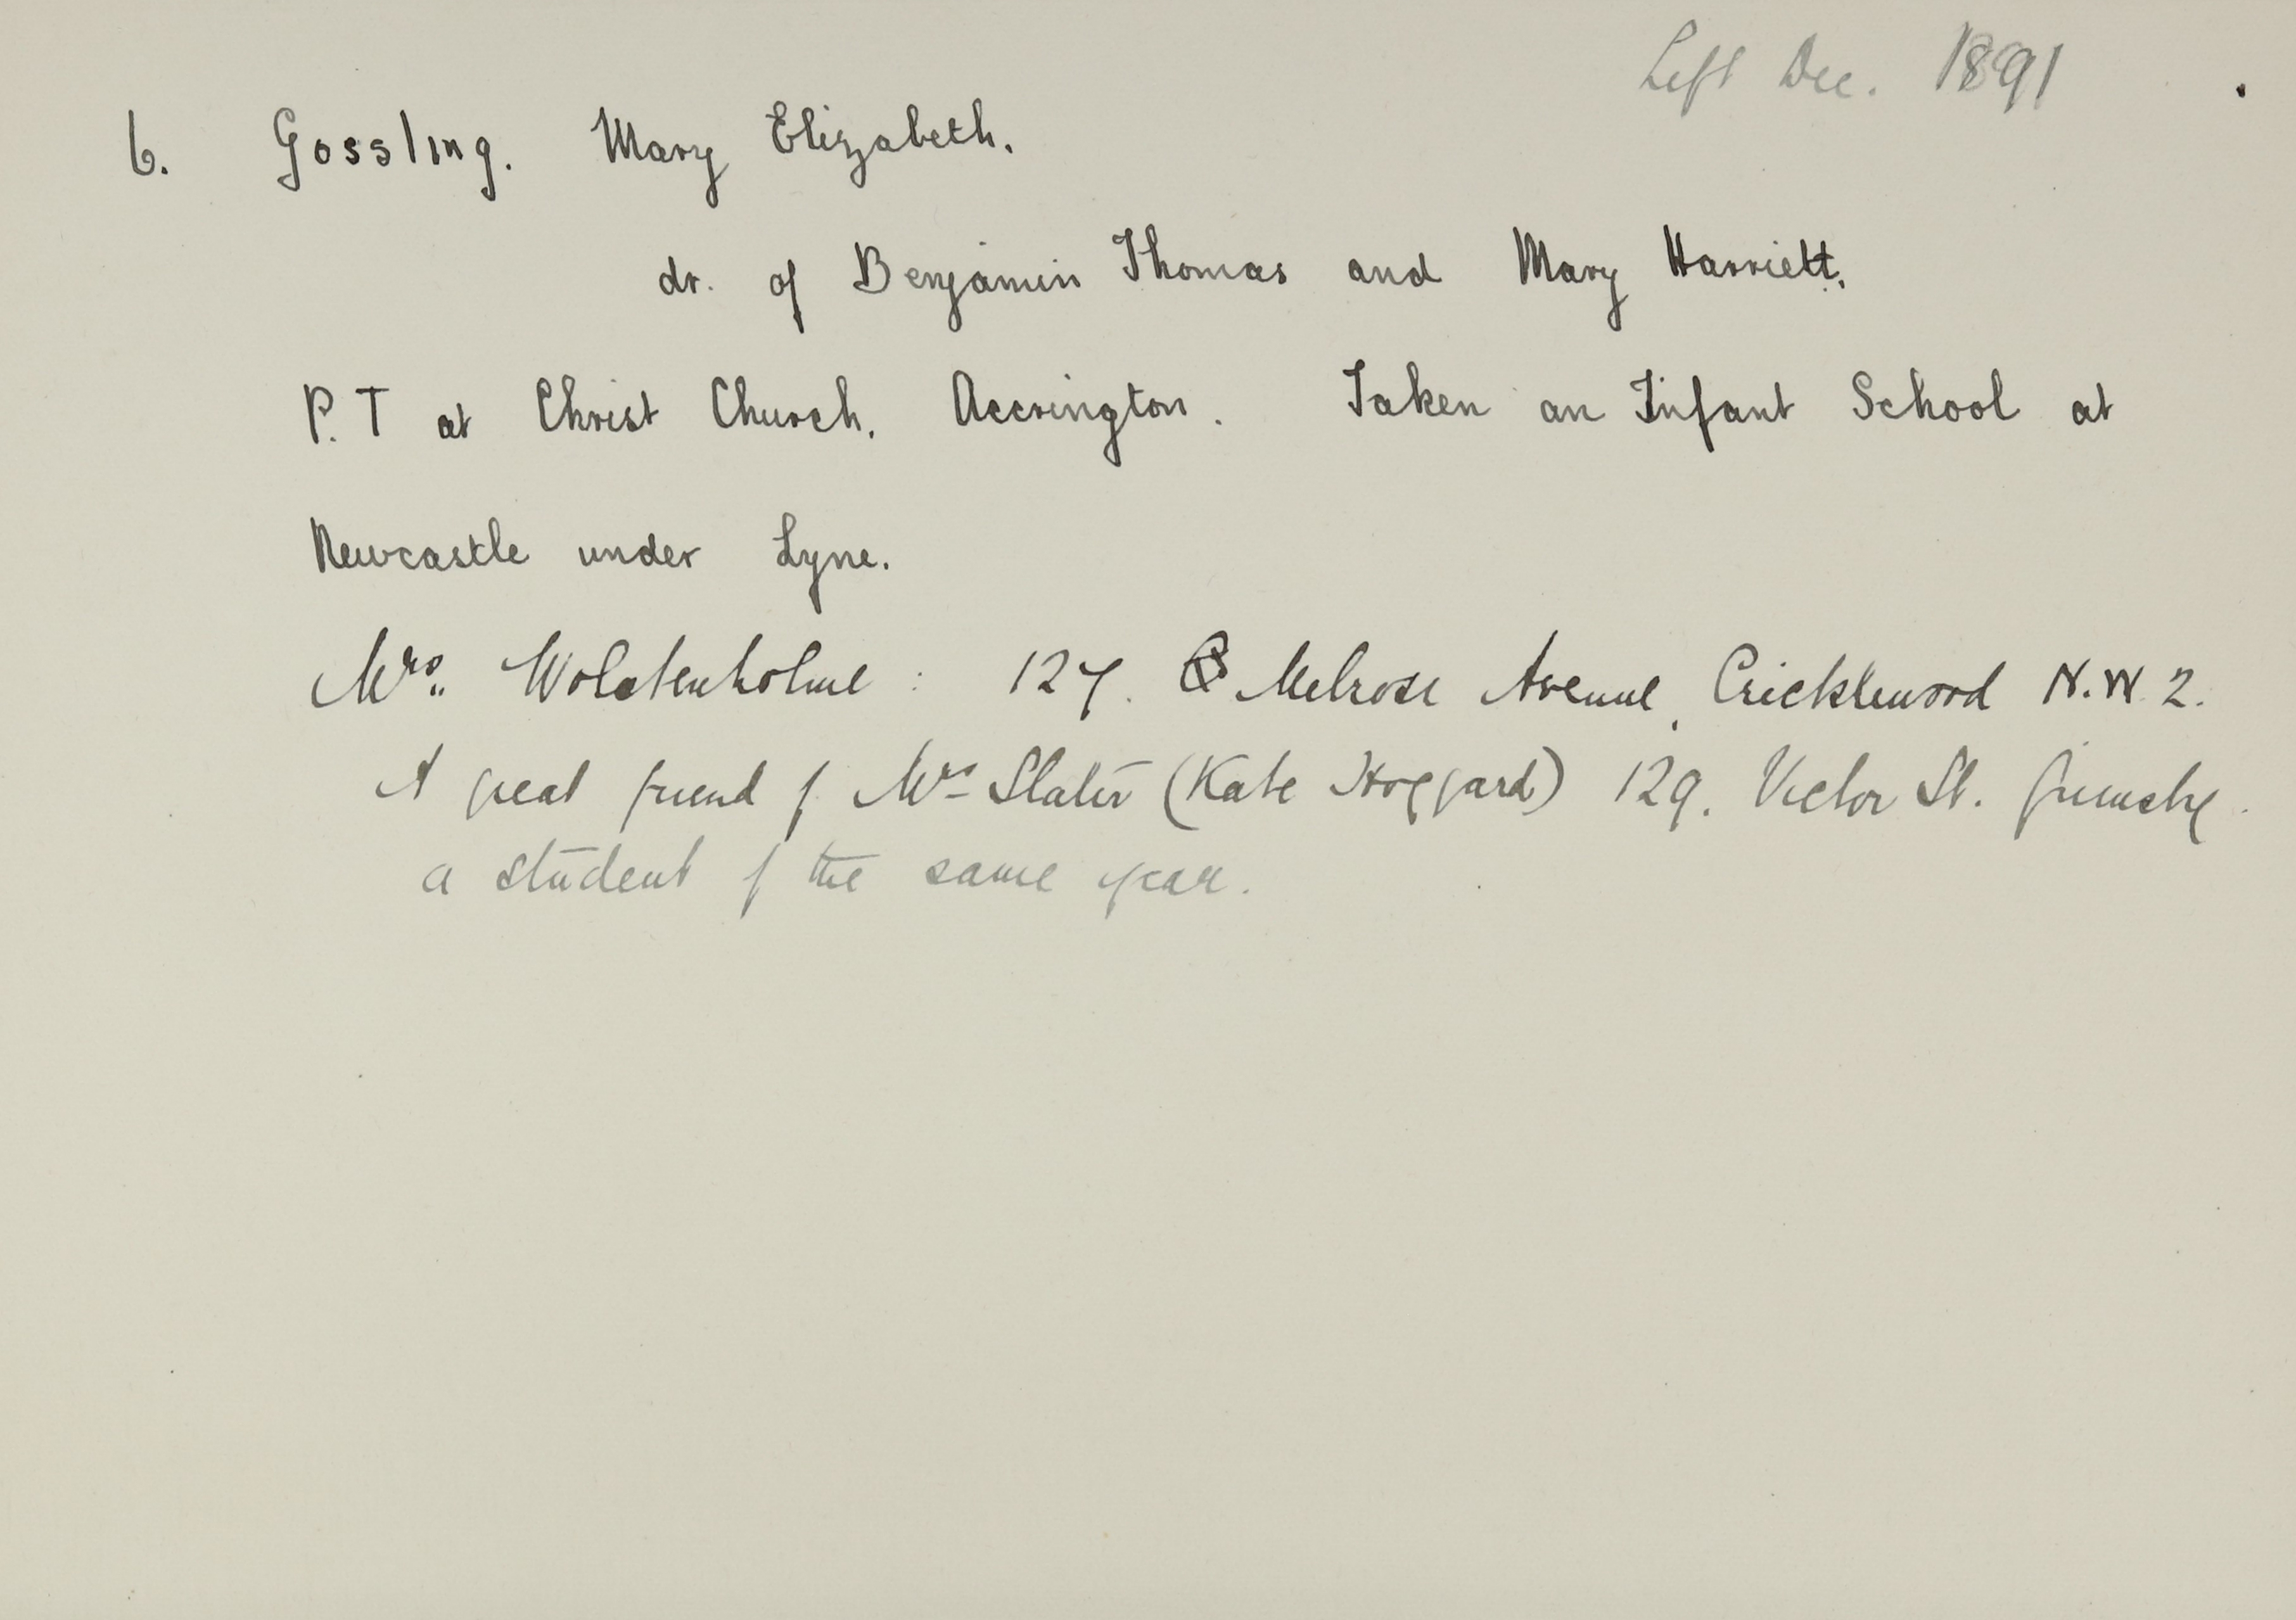 Left Dec. 1891
6. Gossling. Mary Elizabeth.
dr. of Benjamin Thomas and Mary Harriett.
P.T at Christ Church. Accrington. Taken an Infant School at
Newcastle under Lyne.
Mrs. Wolstenholme : 127. Melrose Avenue, Cricklewood N.W 2.
A great friend of Mrs Slater (Kate Hoggard) 129. Victor St. Grimsby.
a student of the same year.